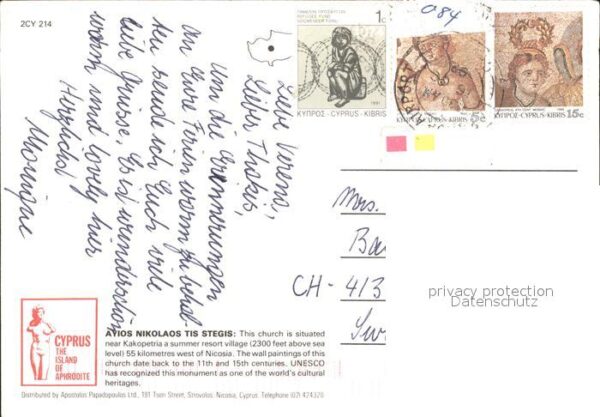 2CY 214
Liebe Verena,
Lieber Thakis,
Um die Erinnerungen
an Eure Ferien warm zu behal-
ten sende ich Euch viele
liebe Grüsse. Es ist wunderschön
warm und lovely hier
Herzlichst
Monique
1c
1991
ΚΥΠΡΟΣ-CYPRUS-KIBRIS
084
ΚΥΠΡΟΣ-CYPRUS-KIBRIS 15c
ΚΥΠΡΟΣ-CYPRUS-KIBRIS 15c
Mrs.
Ba
CH-413
Sw
privacy protection
Datenschutz
CYPRUS
THE
ISLAND
OF
APHRODITE
AYIOS NIKOLAOS TIS STEGIS: This church is situated
near Kakopetria a summer resort village (2300 feet above sea
level) 55 kilometres west of Nicosia. The wall paintings of this
church date back to the 11th and 15th centuries. UNESCO
has recognized this monument as one of the world's cultural
heritages.
Distributed by Apostolos Papadopoulos Ltd., 191 Tseri Street, Strovolos. Nicosia, Cyprus. Telephone (02) 424320